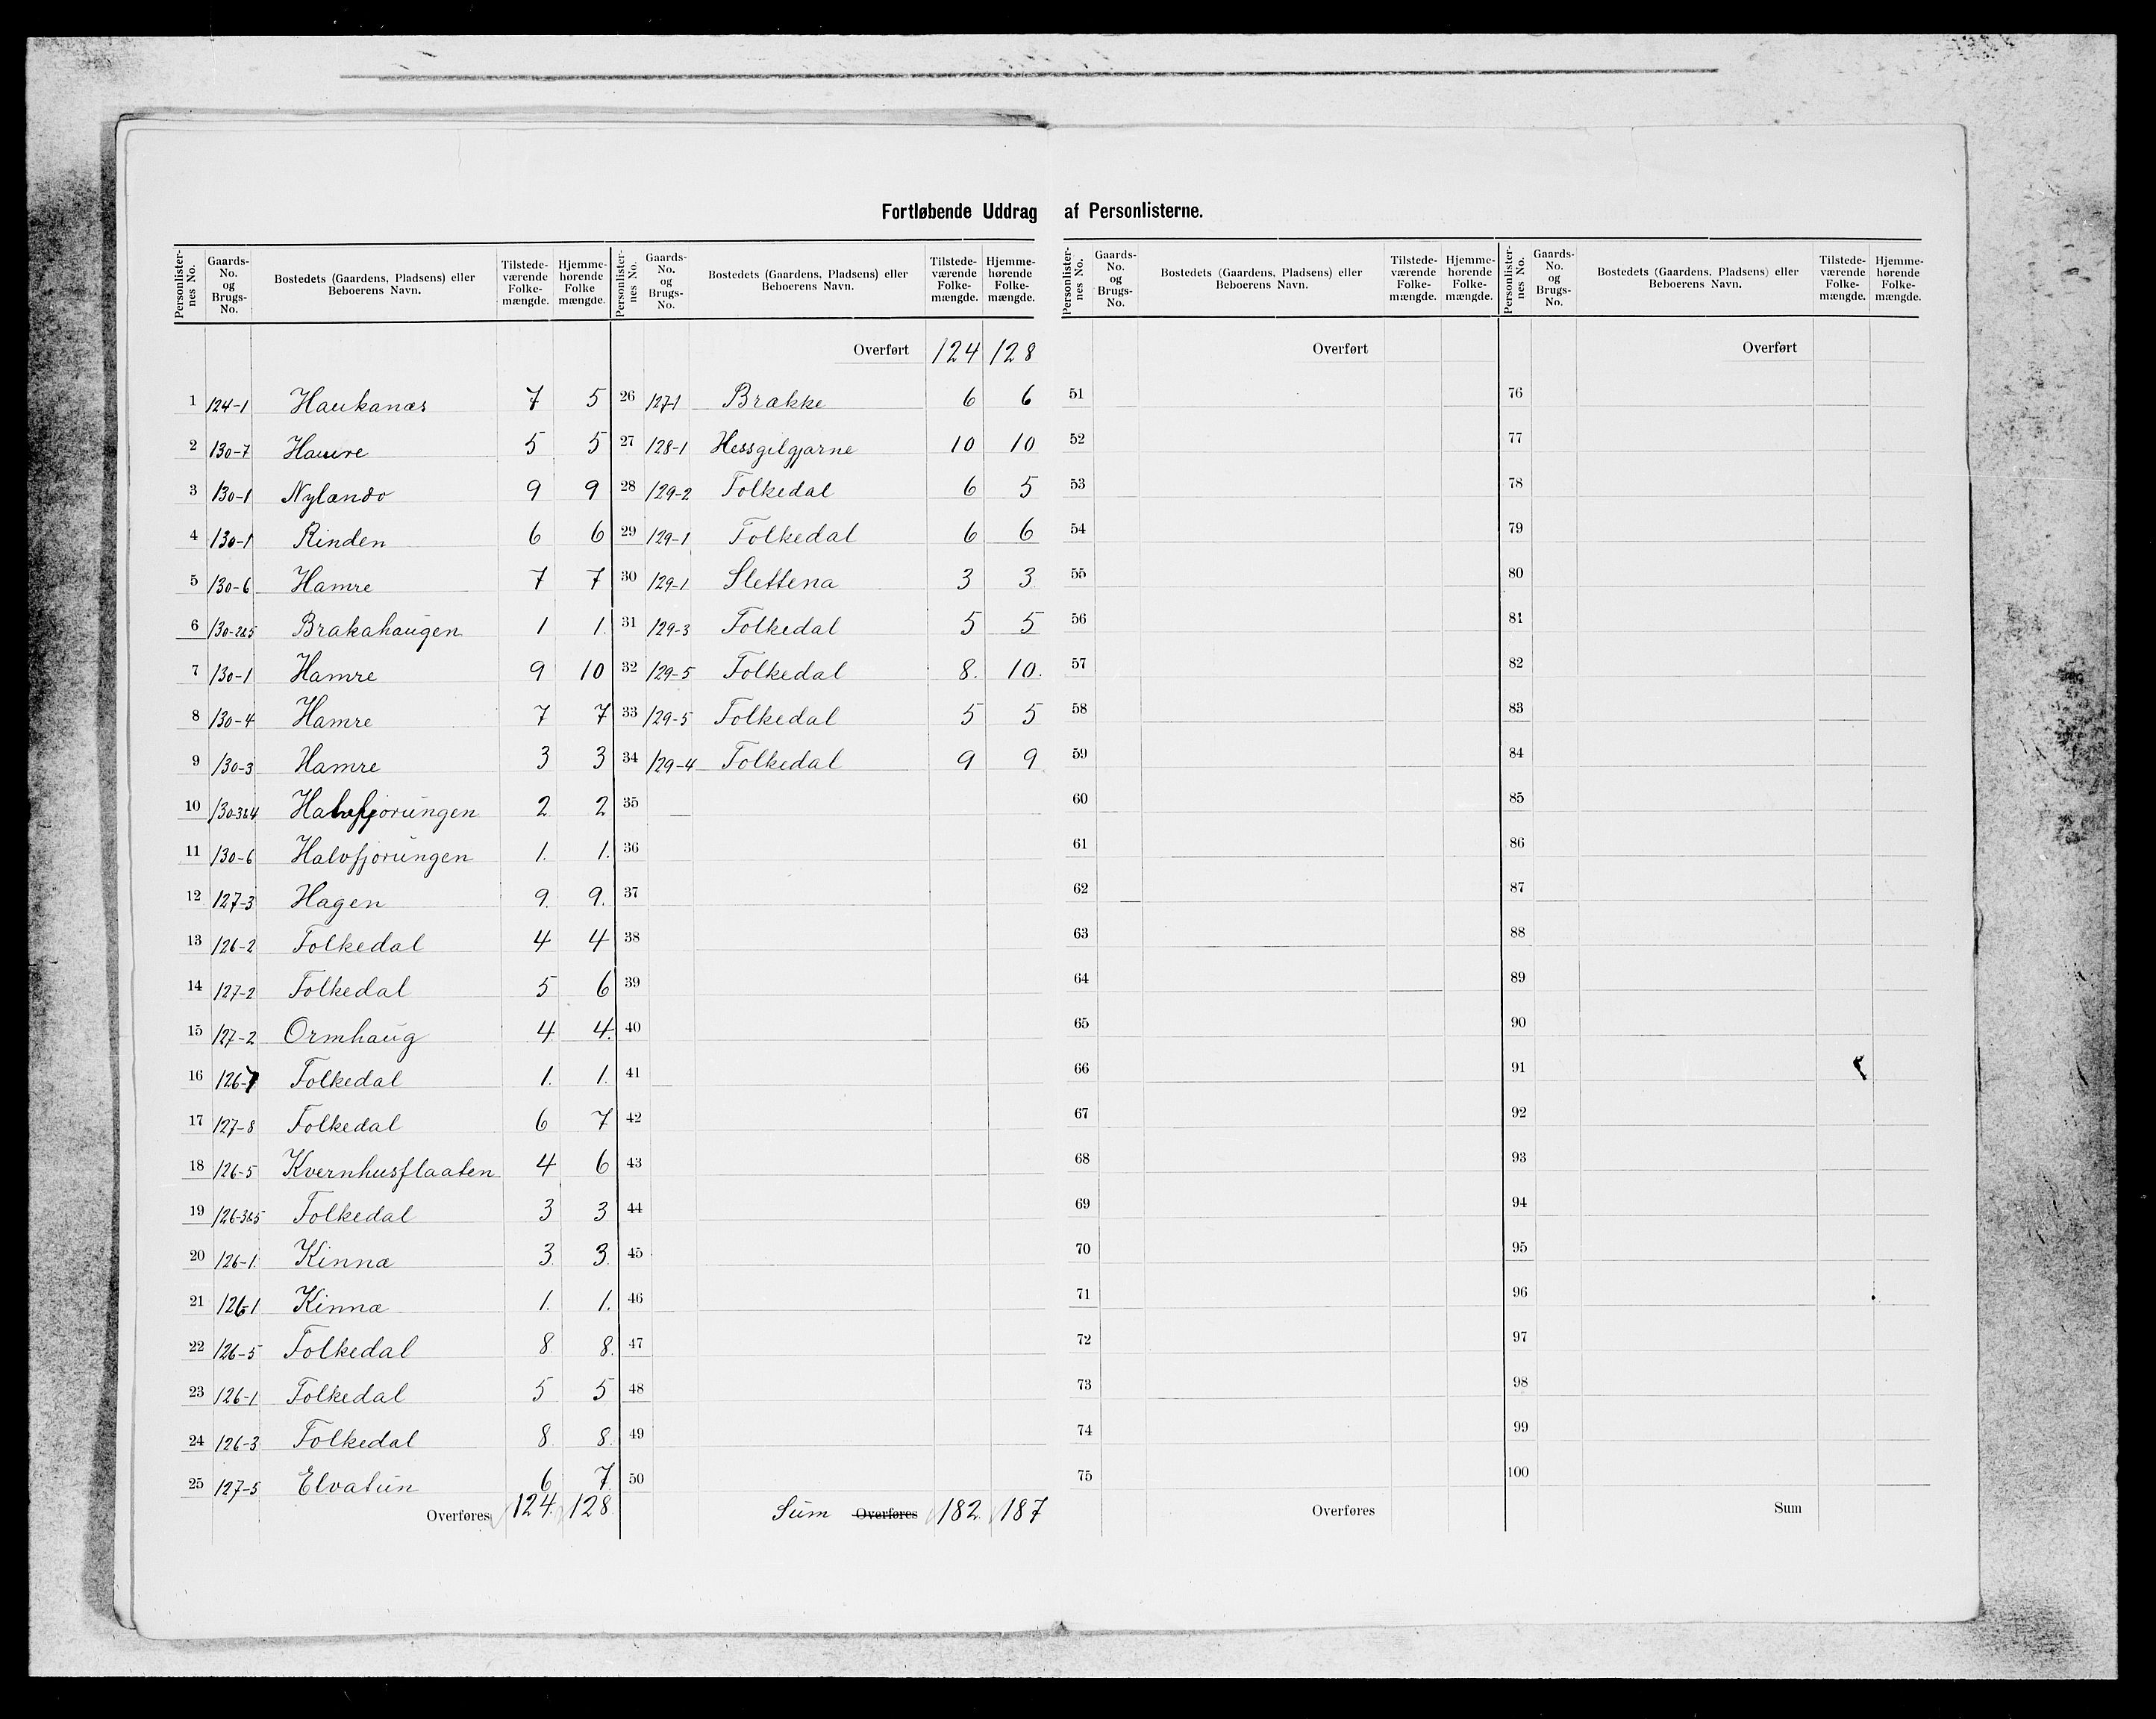 Fortløbende Uddrag af Personlisterne.
Personlister-nes No. | Gaards-No. og Brugs-No. | Bostedets (Gaardens, Pladsens) eller Beboerens Navn. | Tilstede-værende Folke-mængde. | Hjemme-hørende Folke mængde.
1 124-1 Haukanæs 7 5
2 130-7 Hamre 5 5
3 130-1 Nylandø 9 9
4 130-1 Rinden 6 6
5 130-6 Hamre 7 7
6 130-2&5 Brakahaugen 1 1.
7 130-1 Hamre 9 10
8 130-4 Hamre 7 7
9 130-3 Hamre 3 3
10 130-3&4 Halvfjorungen 2 2
11 130-6 Halvfjorungen 1. 1.
12 127-3 Hagen 9. 9.
13 126-2 Folkedal 4 4
14 127-2 Folkedal 5 6
15 127-2 Ormhaug 4 4.
16 126-7 Folkedal 1. 1.
17 127-8 Folkedal 6 7
18 126-5 Kvernhusflaaten 4 6
19 126-3&5 Folkedal 3 3
20 126-1 Kinna 3. 3.
21 126-1 Kinna 1. 1.
22 126-5 Folkedal 8 8.
23 126-1 Folkedal 5 5
24 126-3 Folkedal 8 8.
25 127-5 Elvatun 6 7
Overføres 124. 128.
Personlister-nes No. | Gaards-No. og Brugs-No. | Bostedets (Gaardens, Pladsens) eller Beboerens Navn. | Tilstede-værende Folke-mængde. | Hjemme-hørende Folke-mængde.
Overført 124 128
26 127-1 Brække 6 6
27 128-1 Hessgilgjarne 10 10
28 129-2 Folkedal 6 5
29 129-1 Folkedal 6 6
30 129-1 Slettena 3 3
31 129-3 Folkedal 5 5
32 129-5 Folkedal 8. 10.
33 129-5 Folkedal 5 5
34 129-4 Folkedal 9 9
35
36
37
38
39
40
41
42
43
44
45
46
47
48
49
50
Sum Overføres 182. 187
Personlister-nes No. | Gaards-No. og Brugs-No. | Bostedets (Gaardens, Pladsens) eller Beboerens Navn. | Tilstede-værende Folke-mængde. | Hjemme-hørende Folke-mængde.
Overført
51
52
53
54
55
56
57
58
59
60
61
62
63
64
65
66
67
68
69
70
71
72
73
74
75
Overføres
Personlister-nes No. | Gaards-No. og Brugs-No. | Bostedets (Gaardens, Pladsens) eller Beboerens Navn. | Tilstede-værende Folke-mængde. | Hjemme-hørende Folke-mængde.
Overført
76
77
78
79
80
81
82
83
84
85
86
87
88
89
90
91
92
93
94
95
96
97
98
99
100
Sum